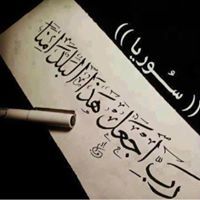 ((سُوريا))
رب اجعل هذا البلد آمنا